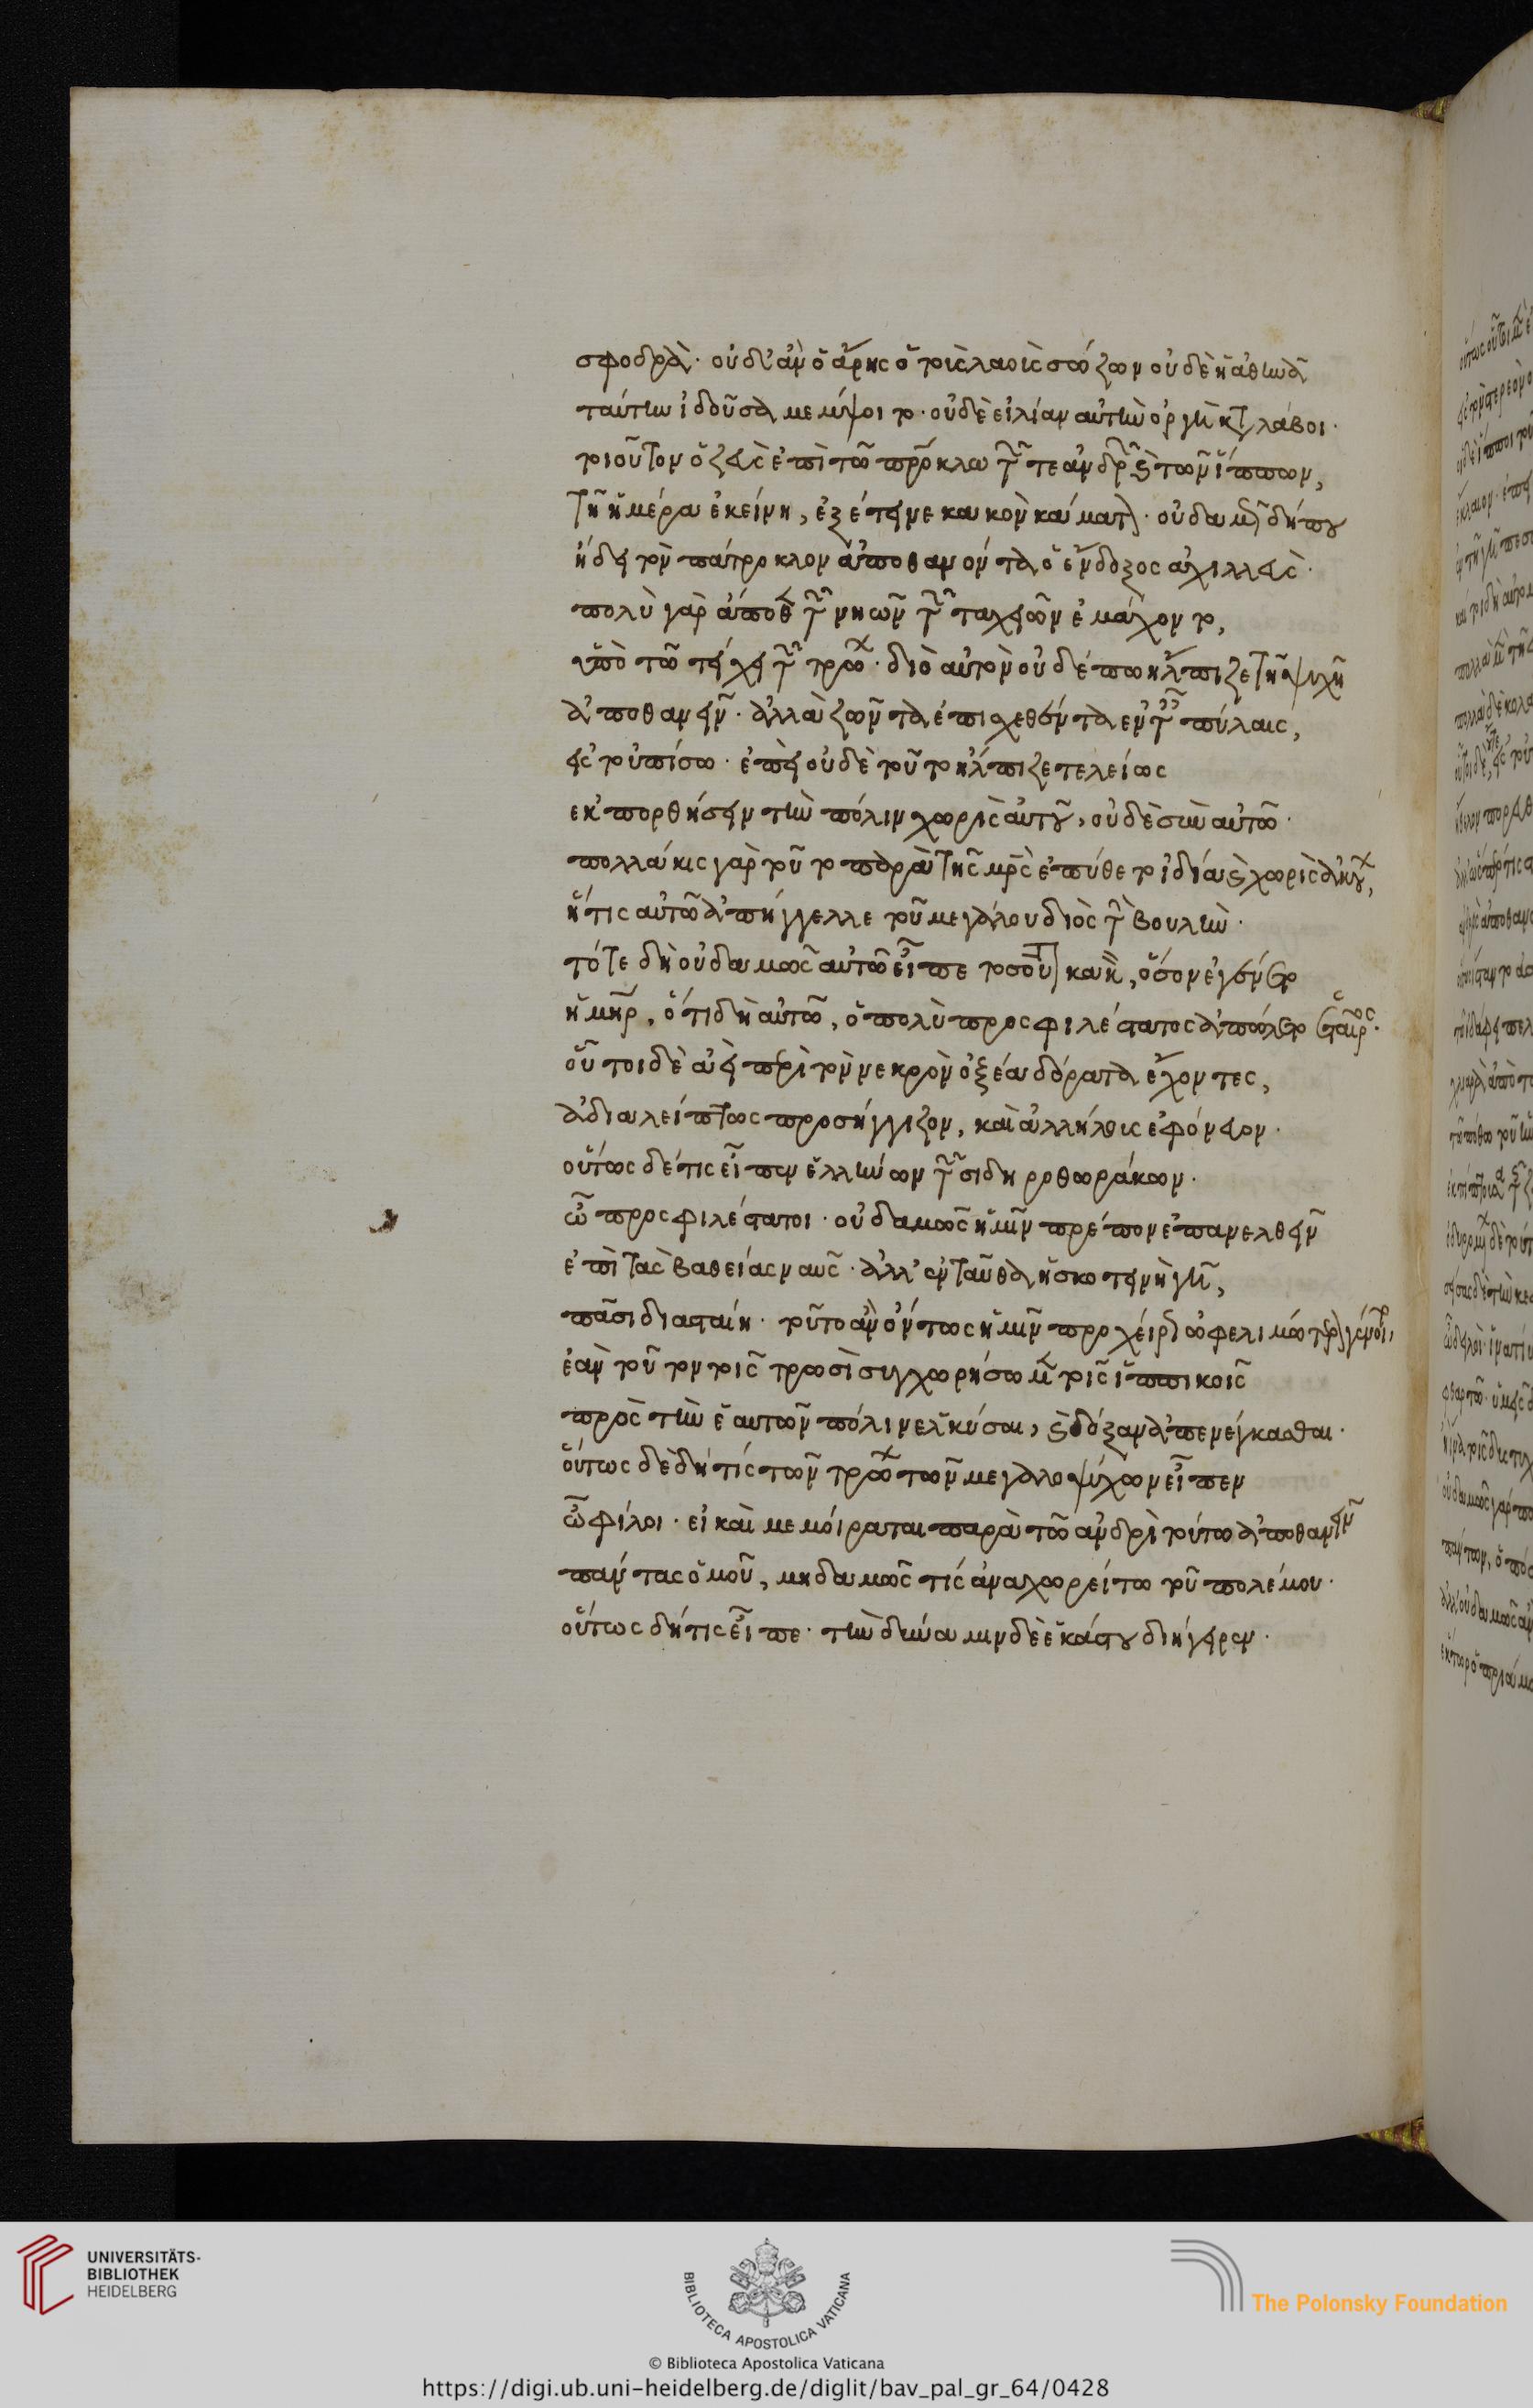 σφοδρὰ· οὐδ' ἂν ὁ ἄρης ὁ τοὺς λαοὺς σώζων οὐδὲ ἡ ἀθηνᾶ
ταύτην ἰδοῦσα μέμψοιτο· οὐδὲ εἰ λίαν αὐτὴν ὀργὴ καταλάβοι·
τοιοῦτον ὁ ζεὺς ἐπὶ τῶ πατρόκλω τῶν τε ἀνδρῶν καὶ τῶν ἵππων,
τῆ ἡμέρα ἐκείνη, ἐξέτεινε κακὸν καύματος· οὐδαμῶς δήπου
ἤδει τὸν πάτροκλον ἀποθανόντα ὁ ἔνδοξος ἀχιλλεὺς·
πολὺ γὰρ ἄποθεν τῶν νηῶν τῶν ταχειῶν ἐμάχοντο,
ὑπὸ τῶ τείχει τῶν τρώων· διὸ αὐτὸν οὐδέπω ἤλπιζε τῆ ψυχῆ
ἀποθανεῖν· ἀλλὰ ζῶντα ἐπισχεθέντα ἐν ταῖς πύλαις,
εἰς τοὐπίσω· ἐπεὶ οὐδὲ τοῦτο ἤλπιζε τελείως
ἐκπορθήσειν τὴν πόλιν χωρὶς αὐτοῦ, οὐδὲ σὺν αὐτῶ·
πολλάκις γὰρ τοῦτο παρὰ τῆς μητρὸς ἐπύθετο ἰδία καὶ χωρὶς ἀκούων,
ἥτις αὐτῶ ἀπήγγελλε τοῦ μεγάλου διὸς τὴν βουλὴν·
τότε δὴ οὐδαμῶς αὐτῶ εἶπε τοσοῦτον κακὸν, ὅσον ἐγένετο
ἡ μήτηρ, ὅτι δὴ αὐτῶ, ὁ πολὺ προσφιλέστατος ἀπώλετο ἑταῖρος·
οὗτοι δὲ ἀεὶ περὶ τὸν νεκρὸν ὀξέα δόρατα ἔχοντες,
ἀδιαλείπτως προσήγγιζον, καὶ ἀλλήλους ἐφόνευον·
οὕτως δέ τις εἶπεν ἑλλήνων τῶν σιδηροθωράκων·
ὦ προσφιλέστατοι· οὐδαμῶς ἡμῖν πρέπον ἐπανελθεῖν
ἐπὶ τὰς βαθείας ναῦς· ἀλλ' ἐνταῦθα ἡ σκοτεινὴ γῆ,
πᾶσι διασταίη· τοῦτο ἂν ὄντως ἡμῖν προχείρως ὠφελιμώτερον γένοιτο,
ἐὰν τοῦτον τοῖς τρωσὶ συγχωρήσωμεν τοῖς ἱππικοῖς
πρὸς τὴν ἑαυτῶν πόλιν ἑλκύσαι, καὶ δόξαν ἀπενέγκασθαι·
οὕτως δὲ δή τις τῶν τρώων τῶν μεγαλοψύχων εἶπεν
ὦ φίλοι· εἰ καὶ μεμοίραται παρὰ τῶ ἀνδρὶ τούτω ἀποθανεῖν
πάντας ὁμοῦ, μηδαμῶς τίς ἀναχωρείτω τοῦ πολέμου·
οὕτως δή τις εἶπε· τὴν δύναμιν δὲ ἑκάστου διήγειρεν·
UNIVERSITÄTS-
BIBLIOTHEK
HEIDELBERG
BIBLIOTECA APOSTOLICA VATICANA
The Polonsky Foundation
© Biblioteca Apostolica Vaticana
https://digi.ub.uni-heidelberg.de/diglit/bav_pal_gr_64/0428